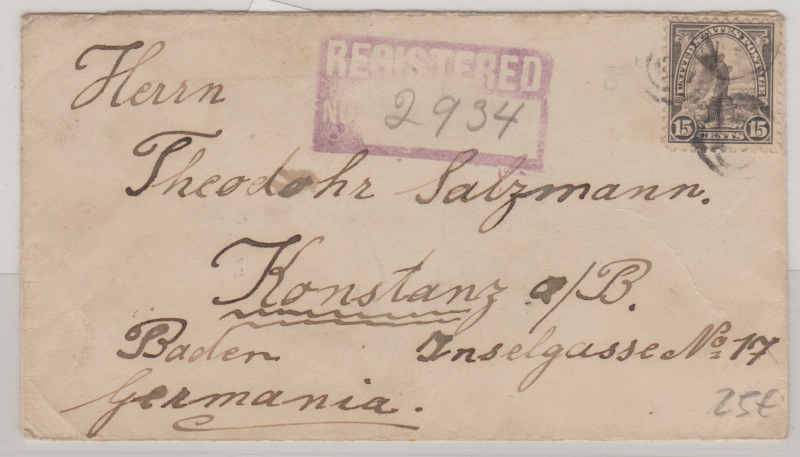 REGISTERED
NO. 2934
UNITED STATES POSTAGE
15 CENTS 15
Herrn
Theodohr Salzmann.
Konstanz a/B.
Baden Inselgasse No 17
Germania.
25€